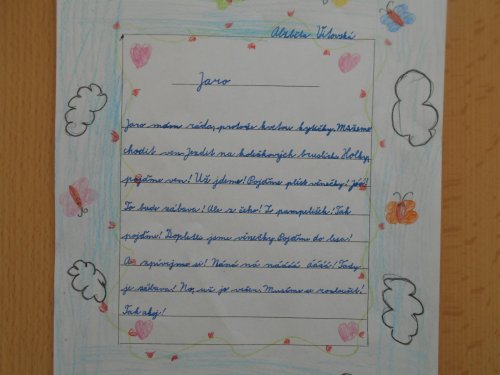 Alžběta Vítovská
Jaro
Jaro mám ráda, protože kvetou kytičky. Můžeme
chodit ven. Jezdit na kolečkových bruslích. Holky,
pojďme ven! Už jdeme! Pojďme plést věnečky! Jóó!
To bude zábava! Ale z čeho! Z pampelišek! Tak
pojďme! Dopletly jsme věnečky. Pojďme do lesa!
A zpívejme si! Náná ná náááá áááá! Tady
je zábava! No, už je večer. Musíme se rozloučit!
Tak ahoj!